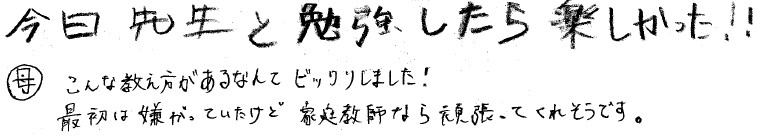 今日先生と勉強したら楽しかった!!
母 こんな教え方があるなんてビックリしました!
最初は嫌がっていたけど 家庭教師なら頑張ってくれそうです。